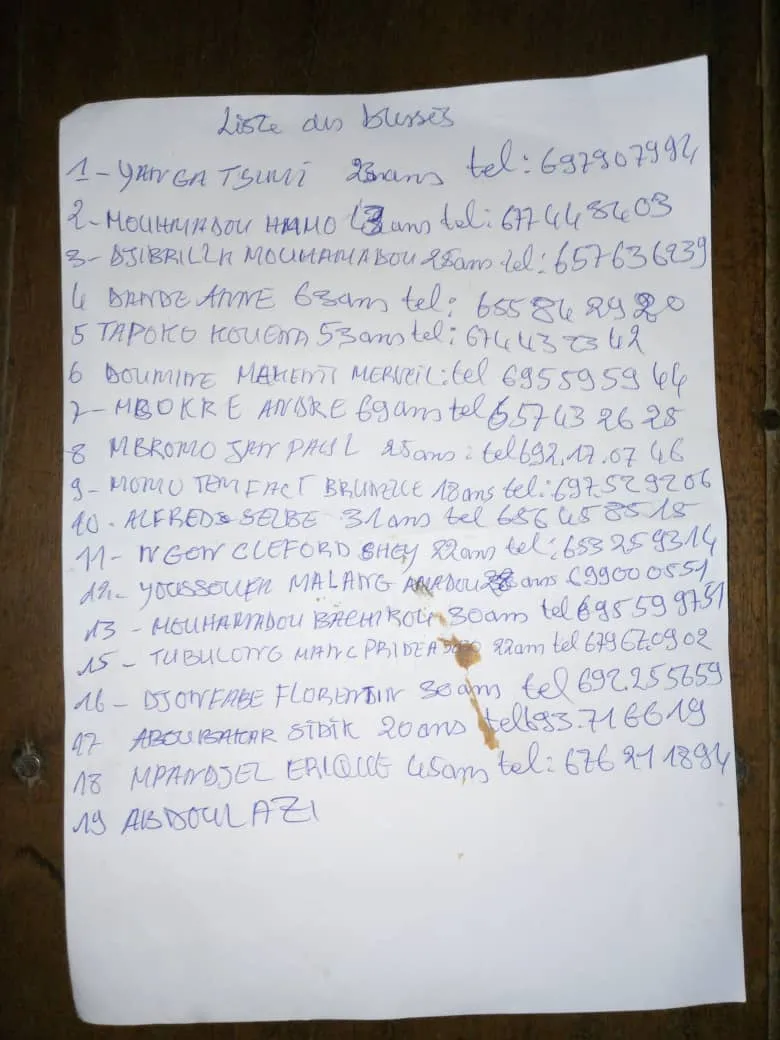 Liste des blessés
1 - YANGA TSIMI ans tel: 697907992
2 - MOUHMADOU HAMO ans tel: 677448403
3 - DJIBRILLA MOUHAMADOU 25ans tel: 657636239
4 DANDE ANNE 63ans tel: 655 84 29 20
5 TAPOKO KOUENA 53ans tel: 674 43 33 42
6 DOUMINE MAKENTI MERVEIL: tel 695595944
7 - MBOKRE ANDRE 69ans tel 65743 26 28
8 MBROMO JAN PAUL 25ans: tel 692.17.07 46
9 - MOMO TEMFACT BRUNELLE 18ans tel: 697.529206
10 - ALFREDS SELBE 31ans tel 656 458515
11 - NGON CLEFORD SHEY 22ans tel: 653 259314
12 - YOUSSOUFA MALANG AMADOU ans 699000551
13 - MOUHAMADOU BACHIROU 30ans tel 695599751
15 - TUBULONG MANC PRIDEA 22am tel 679670902
16 - DJONFABE FLORENTIN 30am tel 692.255659
17 ABOUBAKAR SIDIK 20ans tel 693.716619
18 MPANDJEL ERIQUE 45ans tel: 676 211894
19 ABDOUL AZI